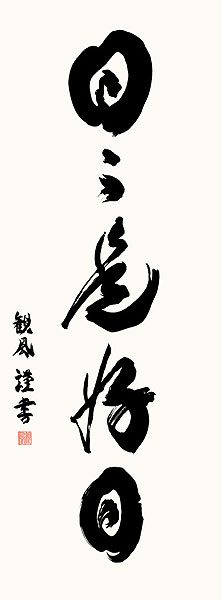 日々是好日
観風 謹書